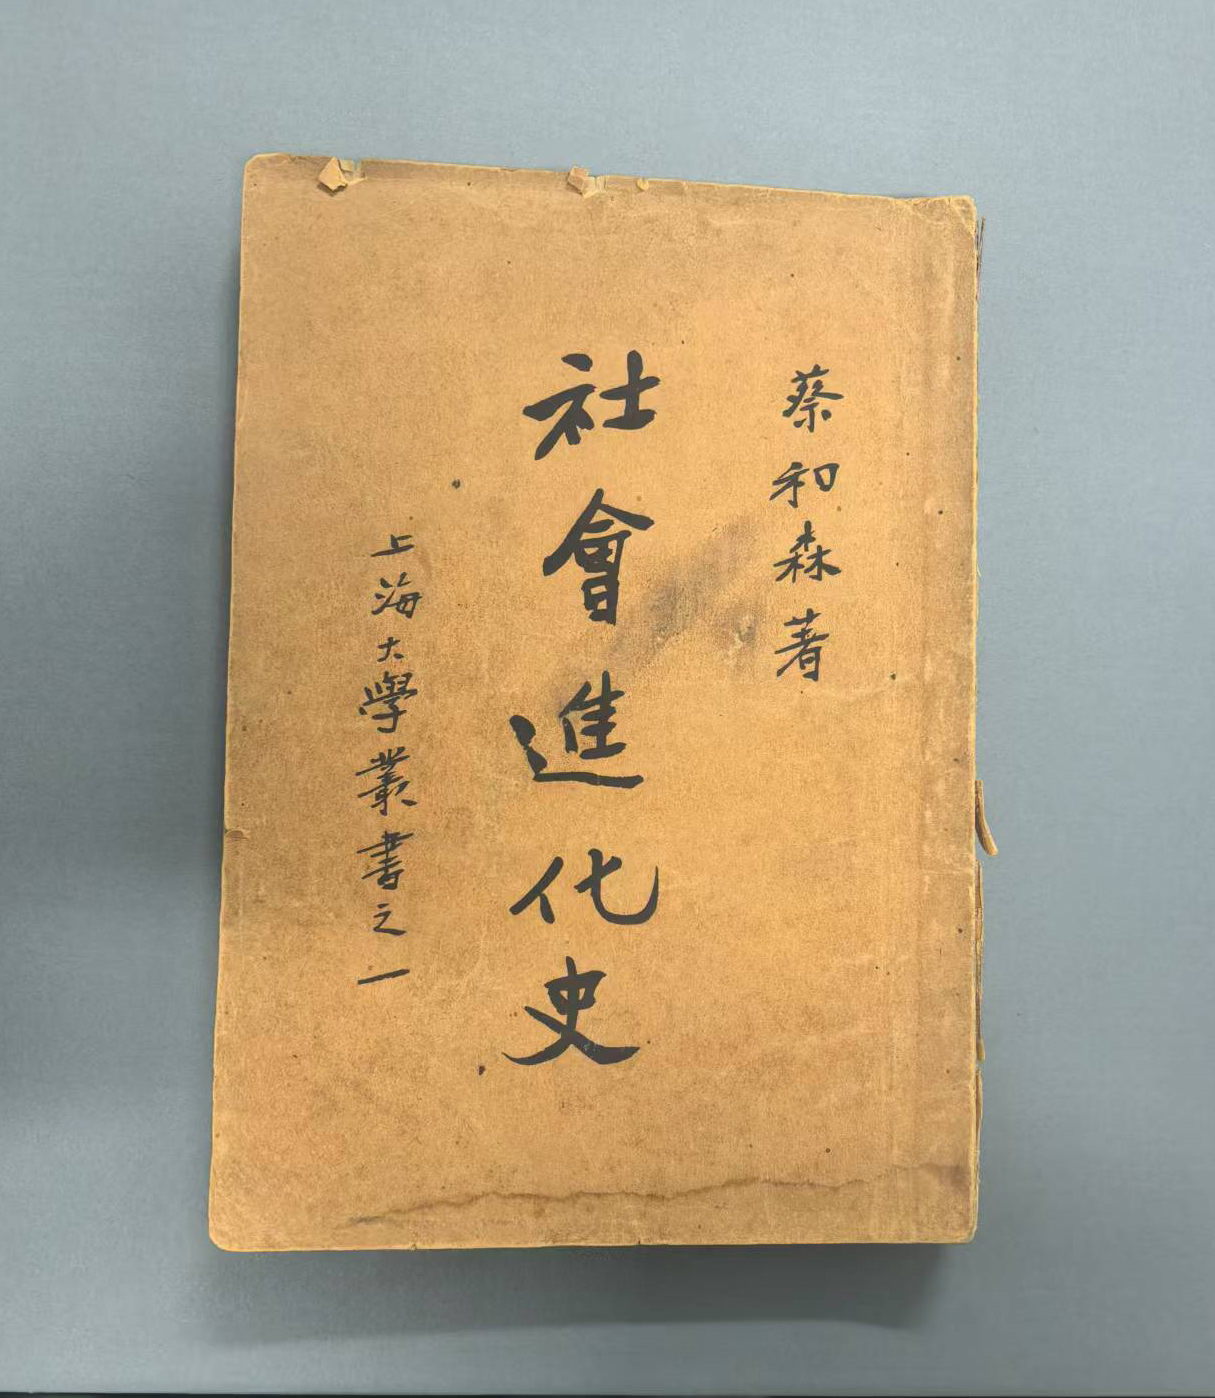 蔡和森著
社會進化史
上海大學叢書之一